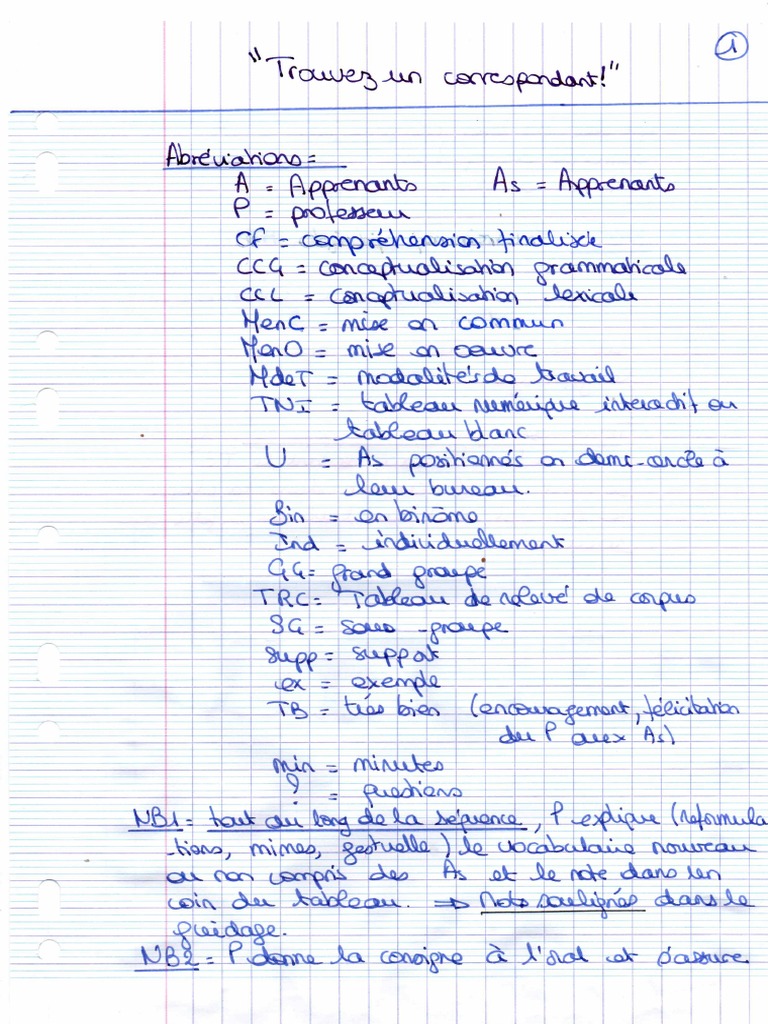 1
"Trouvez un correspondant!"
Abréviations =
A = Apprenants As = Apprenants
P = professeur
CF = compréhension finalisée
CCG = conceptualisation grammaticale
CCL = conceptualisation lexicale
MenC = mise en commun
MenO = mise en oeuvre
MdeT = modalités de travail
TNI = tableau numérique interactif ou
tableau blanc
U = As positionnés en demi-cercle à
leur bureau.
Bin = en binôme
Ind = individuellement
GG = grand groupe
TRC = Tableau de relevé de corpus
SG = sous-groupe
supp = support
ex = exemple
TB = très bien (encouragement, félicitation
du P aux As)
min = minutes
? = questions
NB1 = tout au long de la séquence, P explique (reformula
tions, mimes, gestuelle) le vocabulaire nouveau
ou non compris des As et le note dans un
coin du tableau. => Mots soulignés dans le
guidage.
NB2 = P donne la consigne à l'oral et s'assure